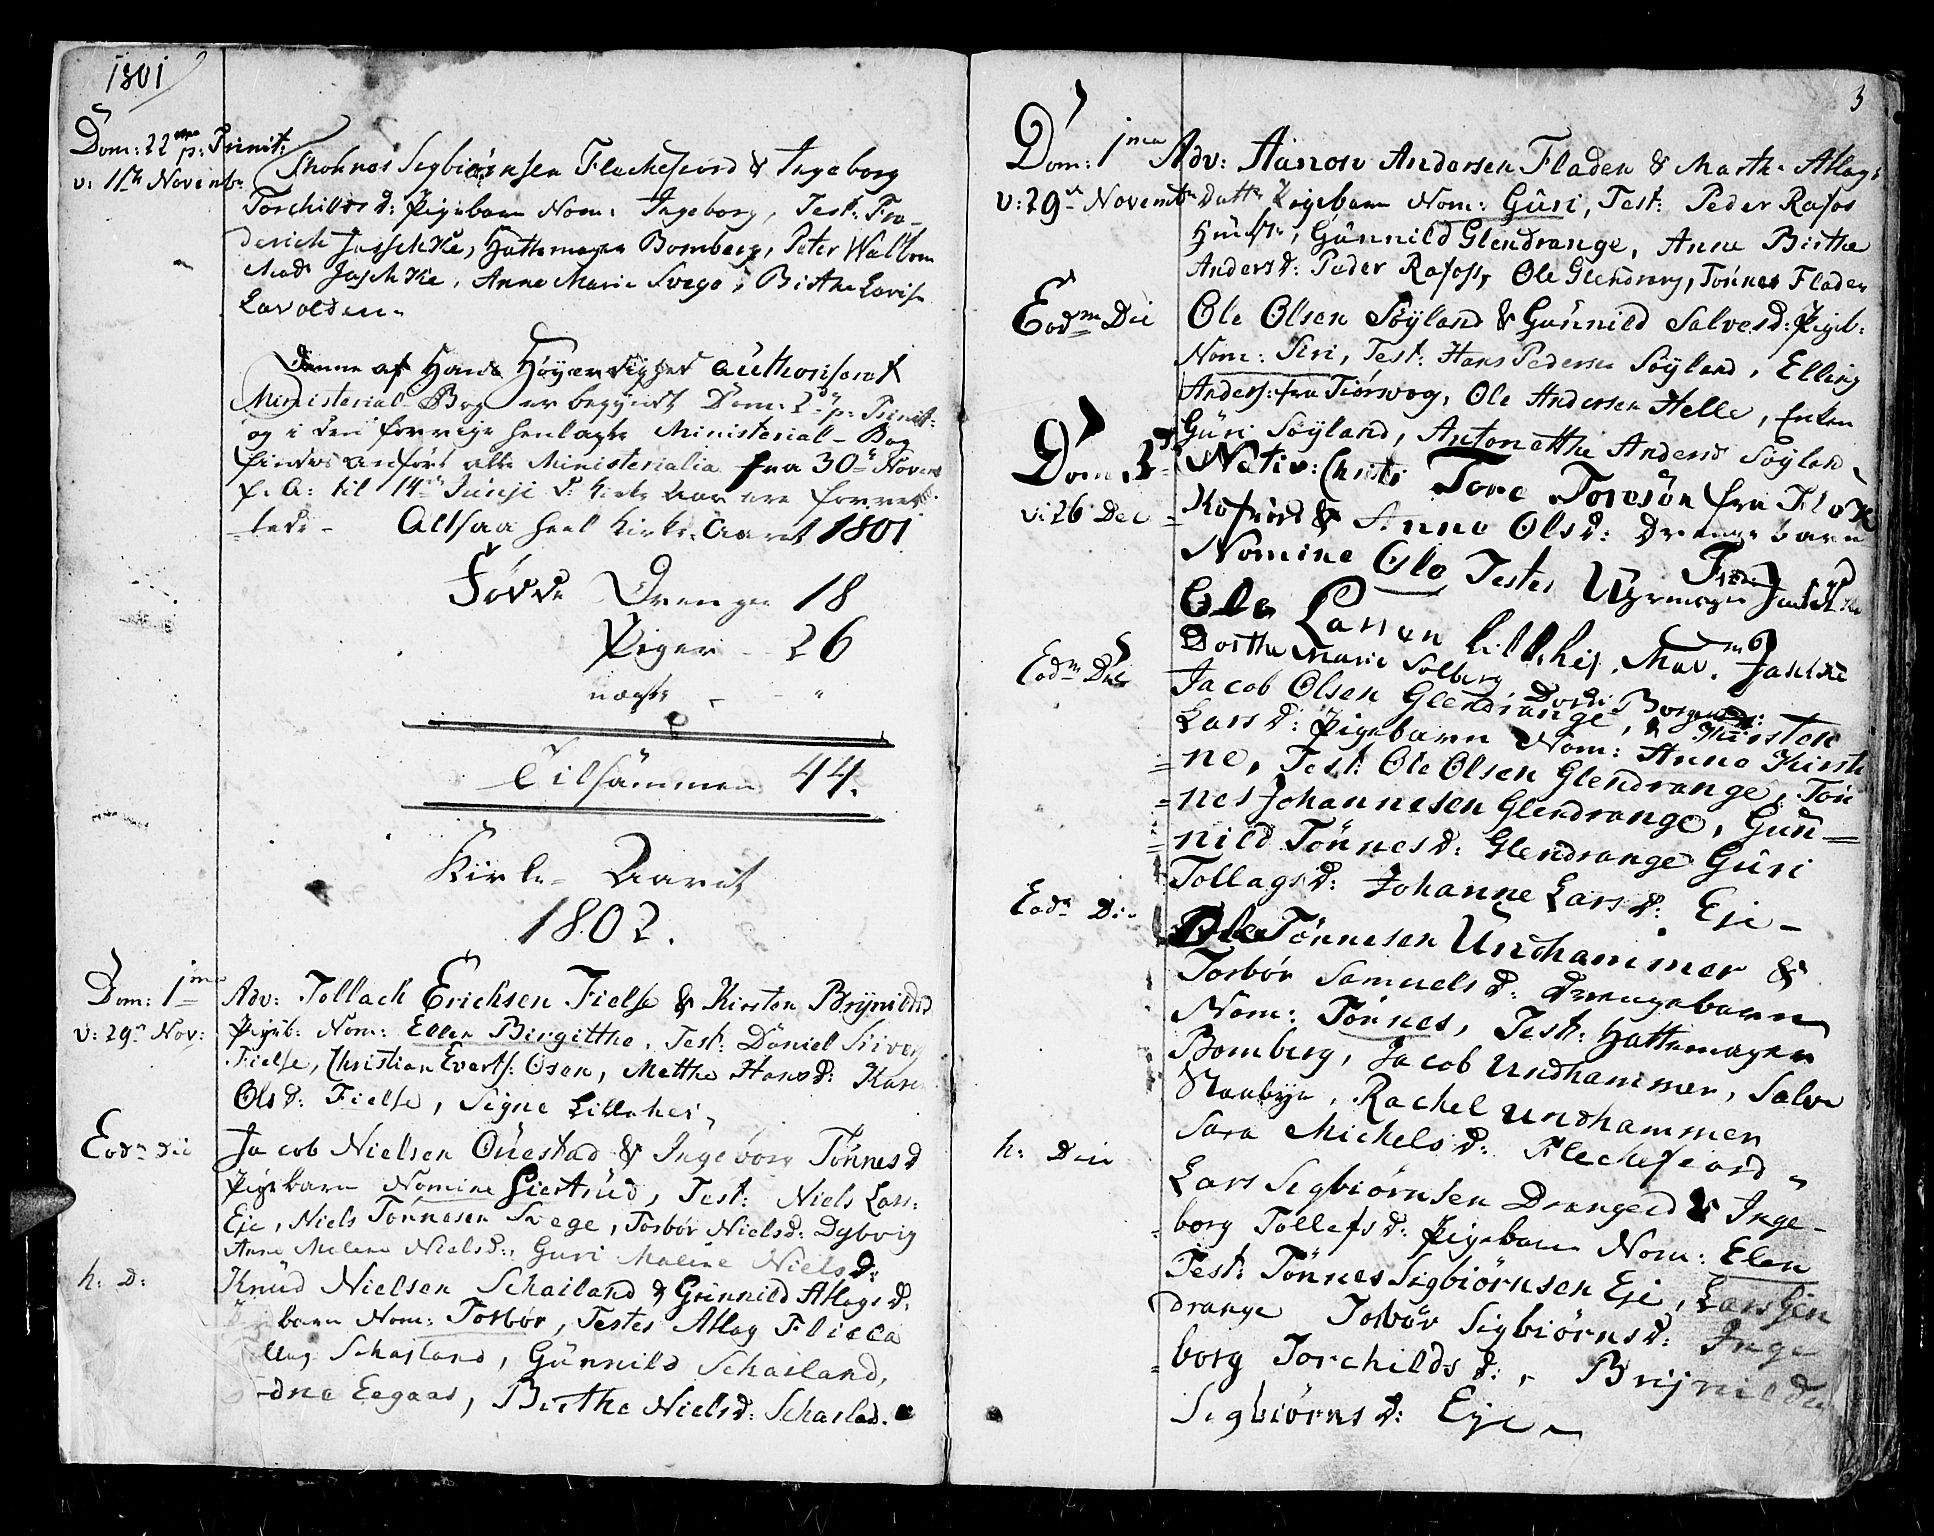 1801
Dom: 22 p: Trinit:
v: 11te Novemb:
Thomas Sigbiørnsen Fleckefiord & Ingeborg
Torchilds d: Pigebarn Nom: Ingeborg, Test: Fre-
derich Jaschke, Hattemager Bomberg, Peter Walbom
Mad Jaschke, Anne Marie Svege, Birthe Lovise
Lavolden.
Denne af Hans Høyærværdighed authoriseret
Ministerial-Bog er begyndt Dom: 2 p: Trinit:
og i den forrige henlagte Ministerial-Bog
findes anført alle Ministerialia fra 30 Novem
f. A: til 14 Junji d: Kirke Aar ere forret
=tede - Altsaa heel Kirke-Aaret 1801
Fødde Drenge 18
Piger - 26
uægte - - "
Tilsammen 44.
Kirke-Aaret
1802.
Dom: 1ma
v: 29 Nov:
Adv: Tollach Erichsen Fielse & Kirsten Brynilds d
Pigeb: Nom: Ellen Birgitthe, Test: Daniel Siver
Fielse, Christian Everts: Osen, Metthe Hans d: Karen
Ols d: Fielse, Signe Lillehei,
Eod Die
Jacob Nielsen Qvestad & Ingeborg Tønnes d
Pigebarn Nomine Giertrud, Test: Niels Lars:
Eie, Niels Tønnesen Svege, Torbør Niels d: Dybvig
Anne Malene Niels d:, Guri Maline Niels d:
h. D:
Knud Nielsen Schailand & Gunnild Atlags d:
barn Nom: Torbør, Testes Atlag Flicca
Schailand, Gunnild Schailand,
Eegaas, Birthe Niels d: Schailad.
3
Dom: 1ma
v: 29 Novemb
Adv: Aanon Andersen Fladen & Marthe Atlags
Datter Pigebarn Nom: Guri, Test: Peder Rafos
Hustru, Gunnild Glendrange, Anne Birthe
Anders d: Peder Rafoss, Ole Glendrang, Tønnes Fladen
Eodm Die
Ole Olsen Søyland & Gunnild Salves d: Pigeb:
Nom: Siri, Test: Hans Pedersen Søyland, Elling
Anders: fra Tiørsvog, Ole Andersen Helle, Enken
Guri Søyland, Antonethe Anders d Søyland
Dom 3
v: 26 Dec
Nativ: Christi Tore Toresøn fra Flek
Kefiord & Anne Ols d: Drengebarn
Nomine Ole Testes Uhrmager Jaschke
Ole Larsen Lillehei, Mad. Jaschke
Dorthe Marie Solberg
Eodm Die
Jacob Olsen Glendrange, & Kirsten
Lars d: Pigebarn Nom: Anne Kirsti
=ne, Test: Ole Olsen Glendrange, Tøn
=nes Johannesen Glendrange, Gun=
nild Tønnes d: Glendrange Guri
Tollags d: Johanne Lars d: Eie-
Eod Die
Ole Tønnesen Undhammer &
Torbør Samuels d: Drengebarn
Nom: Tønnes, Test: Hattemager
Bomberg, Jacob Undhammer, Salve
Raabye, Rachel Undhammer
Sara Michels d: Fleckefiord
h. Die
Lars Sigbiørnsen Drangeid & Inge-
borg Tollefs d: Pigebarn Nom: Elen
Test: Tønnes Sigbiørnsen Eie, Lars Glen
drange Torbør Sigbiørns d: Inge
=borg Torchilds d:, Brynilde
Sigbiørns d: Eye.